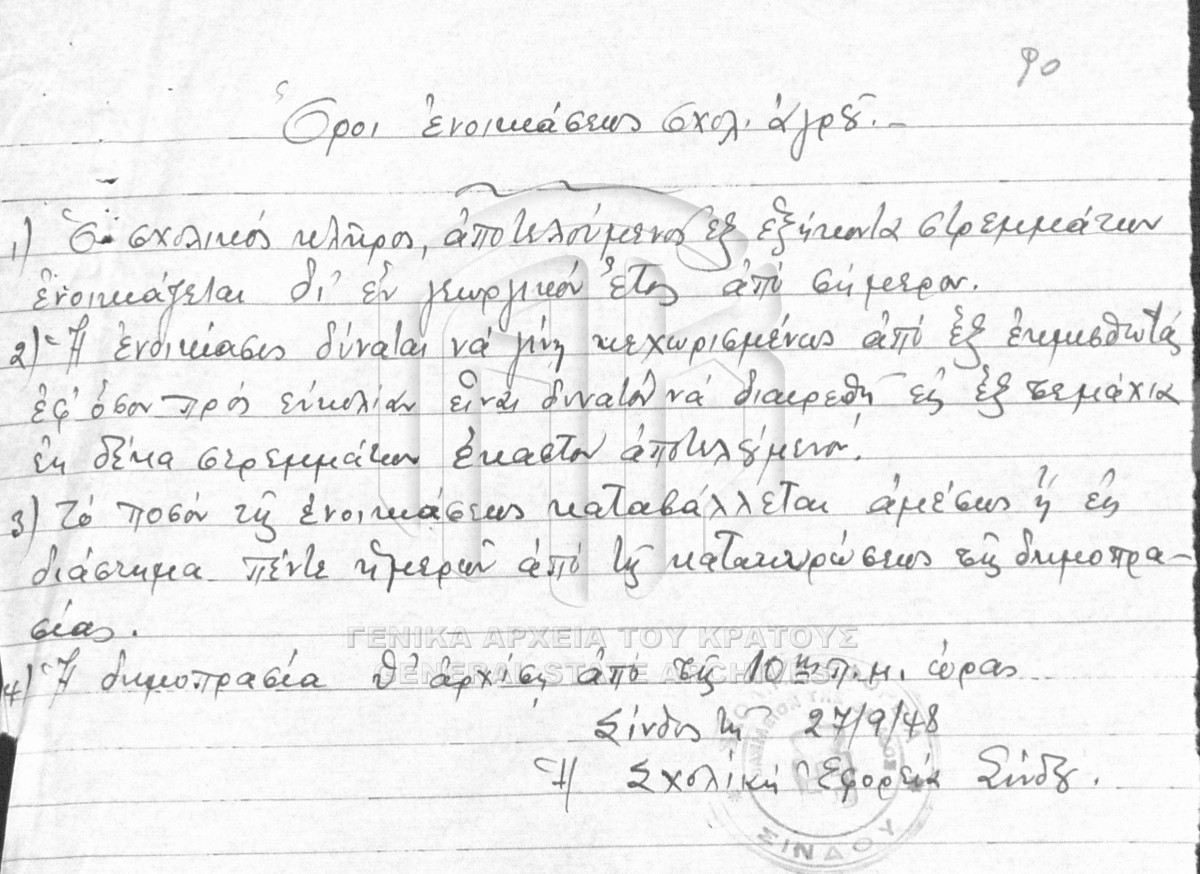 90
Ὅροι ἐνοικιάσεως σχολ. ἀγροῦ.-
1) Ὁ σχολικός κλῆρος, ἀποτελούμενος ἐξ ἑξήκοντα στρεμμάτων
ἐνοικιάζεται δι' ἕν γεωργικόν ἔτος ἀπό σήμερον.
2) Ἡ ἐνοικίασις δύναται νά γίνῃ κεχωρισμένως ἀπό ἕξ ἐκμισθωτάς
ἐφ' ὅσον πρός εὐκολίαν εἶναι δυνατόν νά διαιρεθῆ εἰς ἕξ τεμάχια
ἐκ δέκα στρεμμάτων ἕκαστον ἀποτελούμενον.
3) Τό ποσόν τῆς ἐνοικιάσεως καταβάλλεται ἀμέσως ἤ εἰς
διάστημα πέντε ἡμερῶν ἀπό τῆς κατακυρώσεως τῆς δημοπρα-
σίας.
ΓΕΝΙΚΑ ΑΡΧΕΙΑ ΤΟΥ ΚΡΑΤΟΥΣ
GENERAL STATE ARCHIVES
4) Ἡ δημοπρασία θ' ἀρχίσῃ ἀπό τῆς 10ης π.μ. ὥρας
Σίνδος τῇ 27/9/48
Ἡ Σχολική Ἐφορεία Σίνδου.
ΣΙΝΔΟΥ